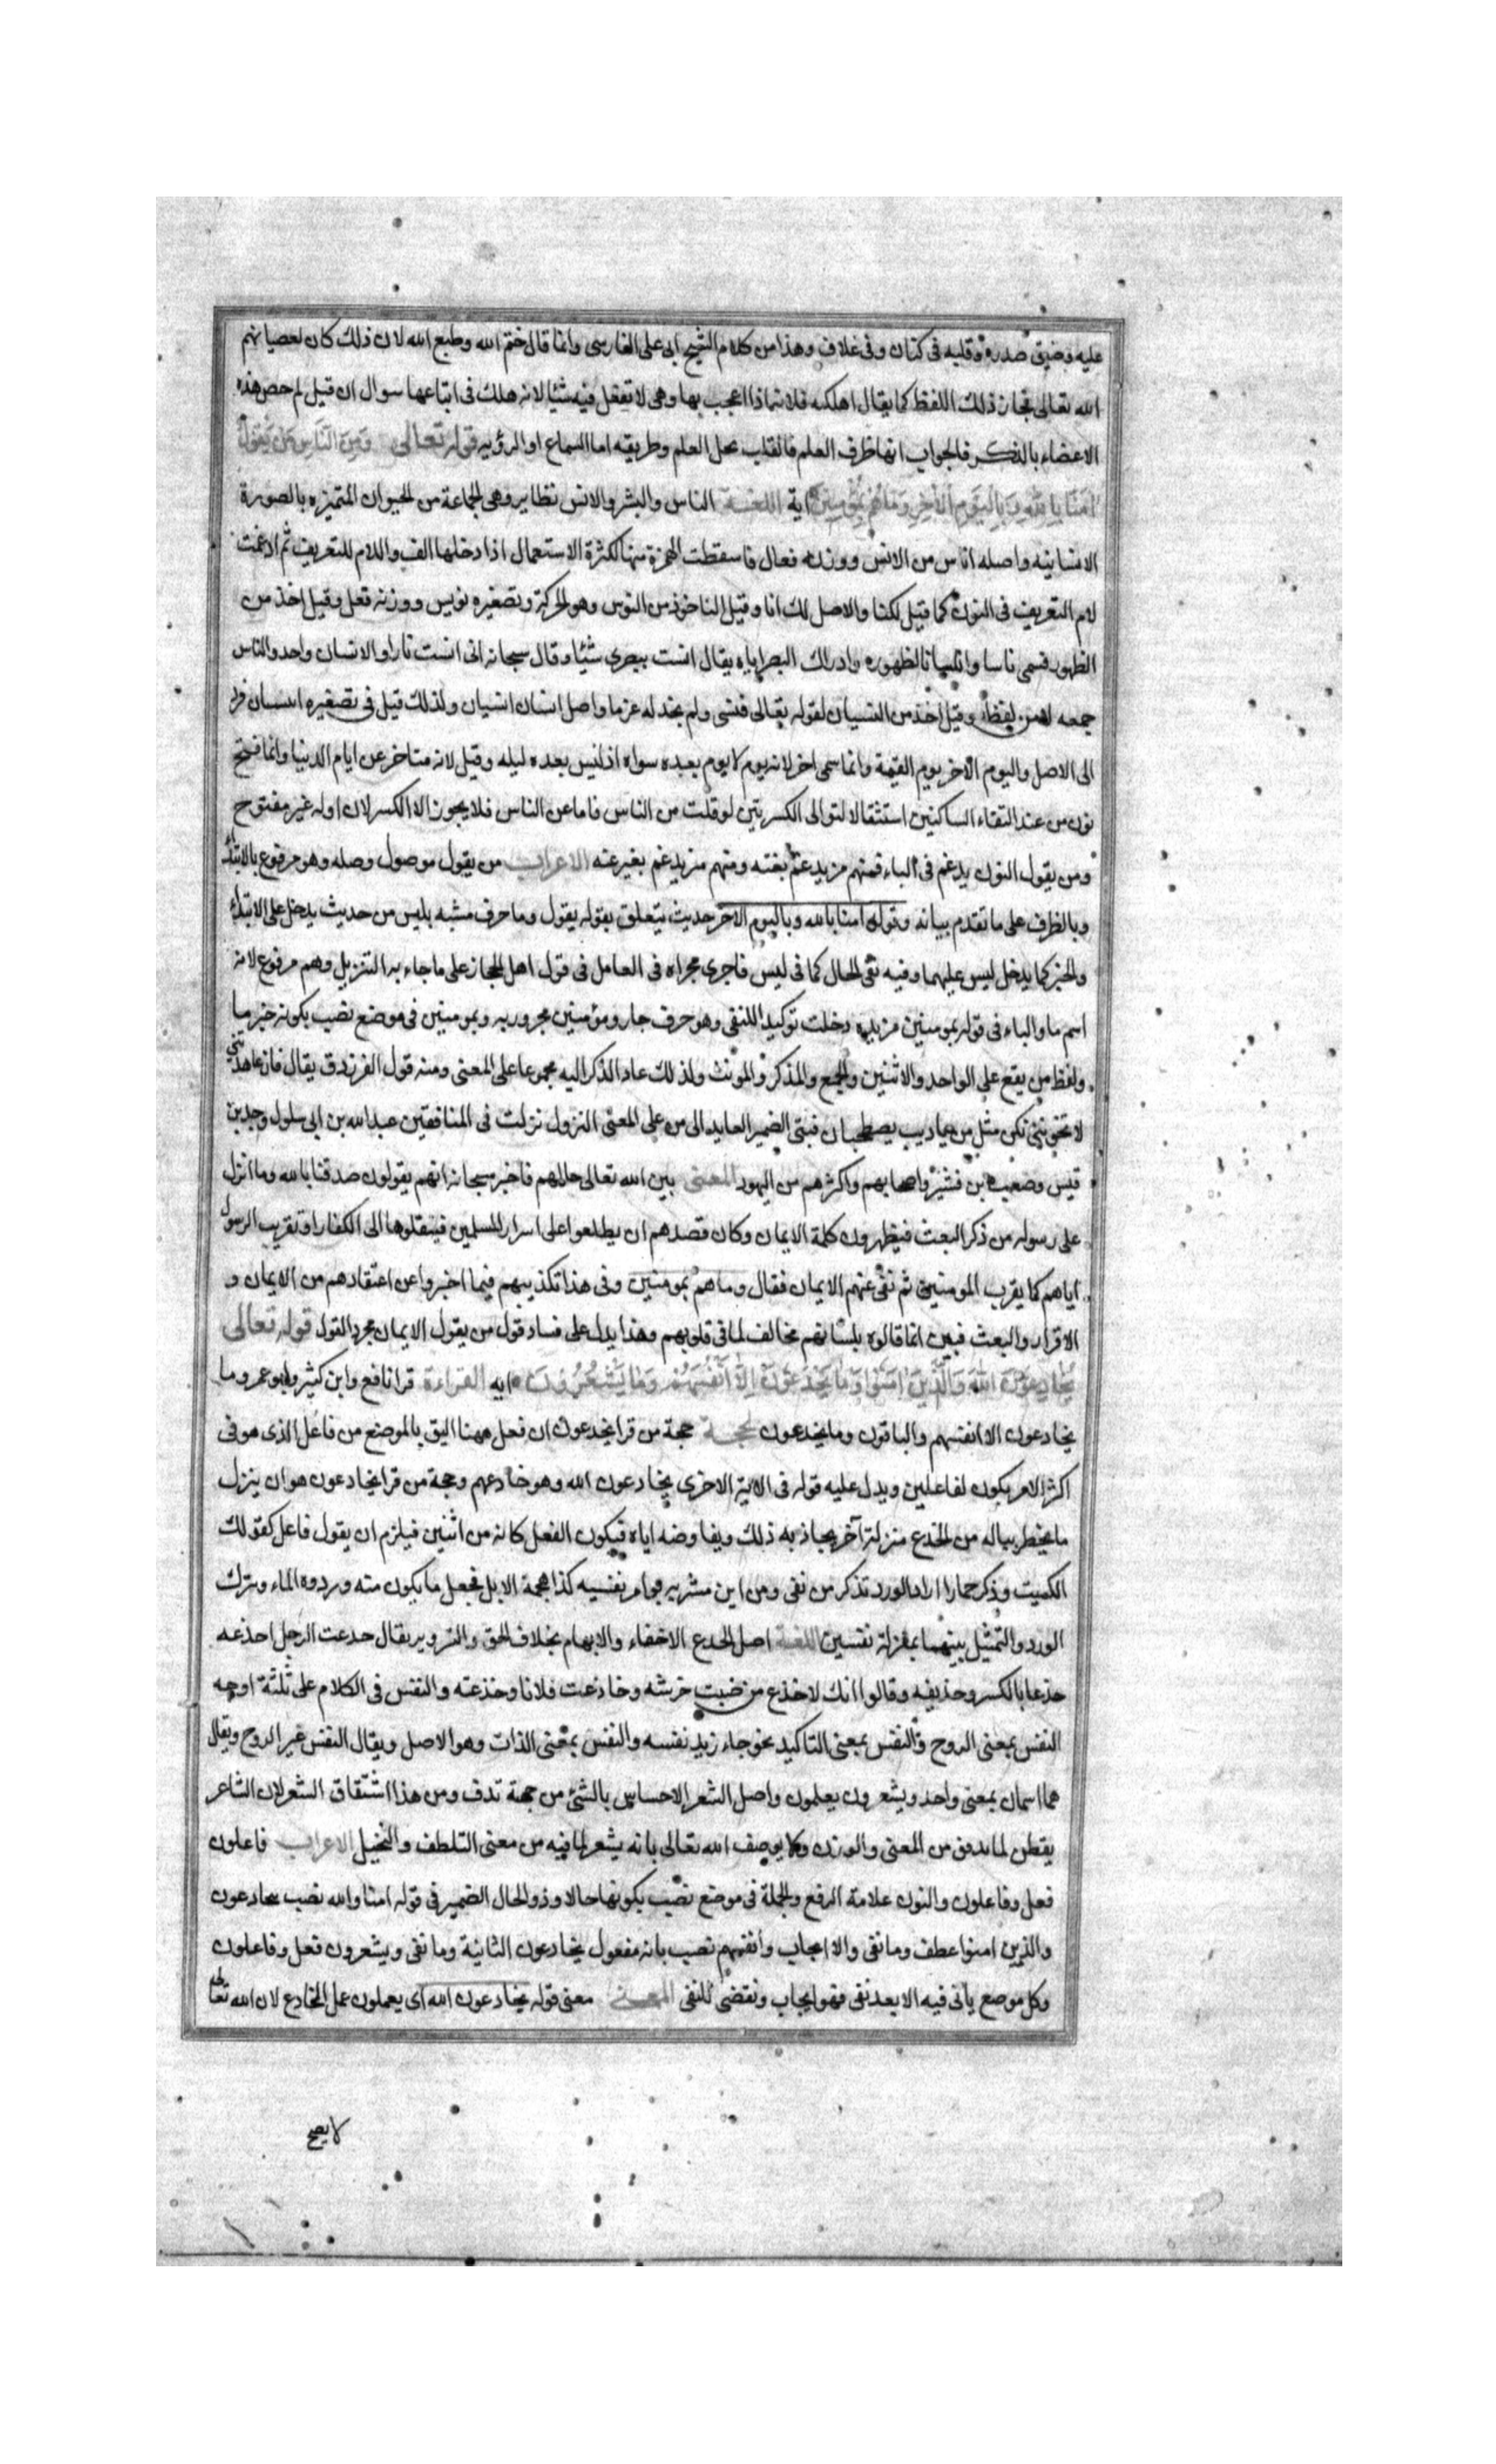 عليه وضيق صدره وقلبه فى كنان وفى غلاف وهذا من كلام الشيخ ابى على الفارسى وانما قال ختم الله وطبع الله لان ذلك كان لعصيانهم
الله تعالى فجاز ذلك اللفظ كما يقال اهلكته فلانة اذا اعجب بها وهى لا تفعل فيه شيئا لانه هلك فى اتباعها سوال ان قيل لم خص هذه
الاعضاء بالذكر فالجواب انها طرف العلم فالقلب محل العلم وطريقه اما السماع او الرؤيه قوله تعالى ومن الناس من يقول
امنا بالله وباليوم الاخر وما هم بمؤمنين اية اللغة الناس والبشر والانس نظاير وهى الجماعة من الحيوان المتميزه بالصورة
الانسانيه واصله اناس من الانس ووزنه فعال فاسقطت الهمزة منها لكثرة الاستعمال اذا دخلها الف واللام للتعريف ثم ادغمت
لام التعريف فى النون كما قيل لكنا والاصل لك انا وقيل الناخوذ من النوس وهو الحركة وتصغيره نويس ووزنه فعل وقيل اخذ من
الظهور فسمى ناسا وانسانا لظهوره وادراك البصر اياه يقال انست ببصرى شيئا وقال سبحانه انى انست نارا والانسان واحد والناس
جمعه لا من لفظه وقيل اخذ من النسيان لقوله تعالى فنسى ولم نجد له عزما واصل انسان انسيان ولذلك قيل فى تصغيره انسيان فرد
الى الاصل واليوم الاخر يوم القيمة وانما سمى اخر لانه يوم لا يوم بعده سواه اذ ليس بعده ليله وقيل لانه متاخر عن ايام الدنيا وانما فتح
نون من عند التقاء الساكنين استثقالا لتوالى الكسرتين لو قلت من الناس فاما عن الناس فلا يجوز الا الكسر لان اوله غير مفتوح
ومن يقول النون يدغم فى الياء فمنهم من يدغم بغنه ومنهم من يدغم بغير غنه الاعراب من يقول موصول وصله وهو مرفوع بالابتداء
وبالظرف على ما تقدم بيانه وقوله امنا بالله وباليوم الاخر حديث يتعلق بقوله يقول وما حرف مشبه بليس من حديث يدخل على الابتداء
والخبر كما يدخل ليس عليهما وفيه نفى الحال كما فى ليس فاجرى مجراه فى العامل فى قول اهل الحجاز على ما جاء به التنزيل وهم مرفوع لانه
اسم ما والباء فى قوله بمومنين مزيده دخلت توكيدا للنفى وهو حرف جار ومؤمنين مجرور به وبمومنين فى موضع نصب بكونه خبر ما
ولفظ من يقع على الواحد والاثنين والجمع والمذكر والمونث ولذلك عاد الذكر اليه مجموعا على المعنى ومنه قول الفرزدق يقال فان عاهدتنى
لا تخوننى نكن مثل من يا ديب يصطحبان فبنى الضمير العايد الى من على المعنى النزول نزلت فى المنافقين عبد الله بن ابى سلول وجد بن
قيس بن قشير واصحابهم واكثرهم من اليهود المعنى بين الله تعالى حالهم فاخبر سبحانه انهم يقولون صدقنا بالله وما انزل
على رسوله من ذكر البعث فيظهرون كلمة الايمان وكان قصدهم ان يطلعوا على اسرار المسلمين فينقلوها الى الكفار او تقريب الرسول
اياهم كما يقرب المومنين ثم نفى عنهم الايمان فقال وما هم بمومنين وفى هذا تكذيبهم فيما اخبروا عن اعتقادهم من الايمان و
الاقرار والبعث فبين انما قالوه بلسانهم مخالف لما فى قلوبهم وهذا يدل على فساد قول من يقول الايمان مجرد القول قوله تعالى
يخادعون الله والذين امنوا وما يخدعون الا انفسهم وما يشعرون ايه القراءة قرا نافع وابن كثير وابو عمر وما
يخادعون الا انفسهم والباقون وما يخدعون الحجة حجة من قرا يخدعون ان فعل ههنا اليق بالموضع من فاعل الذى هو فى
اكثر الامر يكون لفاعلين ويدل عليه قوله فى الاية الاخرى يخادعون الله وهو خادعهم وحجة من قرا يخادعون هو ان ينزل
ما يخطر بباله من الخدع منزلة آخر يجاذبه ذلك ويفاوضه اياه فيكون الفعل كانه من اثنين فيلزم ان يقول فاعل كقولك
الكميت وذكر حمارا اراد الورد تذكر من نفى ومن اين مشربه يوامر نفسيه كذا هجمة الابل فجعل ما يكون منه وردوه الماء وترك
الورد والتمثيل بينهما بمنزلة نفسين اللغة اصل الخدع الاخفاء والابهام بخلاف الحق والتزوير يقال خدعت الرجل اخدعه
خدعا بالكسر وخديعه وقالوا انك لاخدع من ضب حرشته وخادعت فلانا وخدعته والنفس فى الكلام على ثلثة اوجه
النفس بمعنى الروح والنفس بمعنى التاكيد نحو جاء زيد نفسه والنفس بمعنى الذات وهو الاصل ويقال النفس غير الروح ويقال
هما اسمان بمعنى واحد ويشعرون يعلمون واصل الشعر الاحساس بالشئ من جهة تدق ومن هذا اشتقاق الشعر لان الشاعر
يفطن لما يدق من المعنى والوزن ولا يوصف الله تعالى بانه يشعر لما فيه من معنى التلطف والتخيل الاعراب فاعلون
فعل وفاعلون والنون علامة الرفع والجملة فى موضع نصب بكونها حالا وذو الحال الضمير فى قوله امنا والله نصب بيخادعون
والذين امنوا عطف وما نفى والا ايجاب وانفسهم نصب بانه مفعول يخادعون الثانية وما نفى ويشعرون فعل وفاعلون
وكل موضع ياتى فيه الا بعد نفى فهو ايجاب ونقض للنفى المعنى معنى قوله يخادعون الله اى يعملون عمل المخادع لان الله تعالى
لا يصح